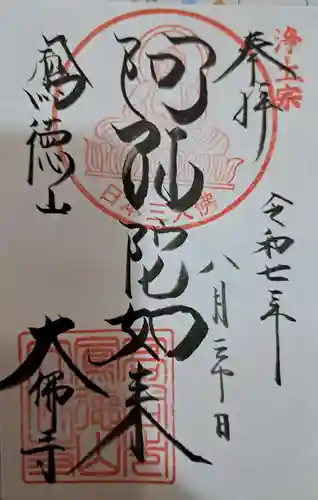 浄土宗
奉拝
令和七年
八月三十日
阿弥陀如来
日本三大佛
鳳徳山
大佛寺